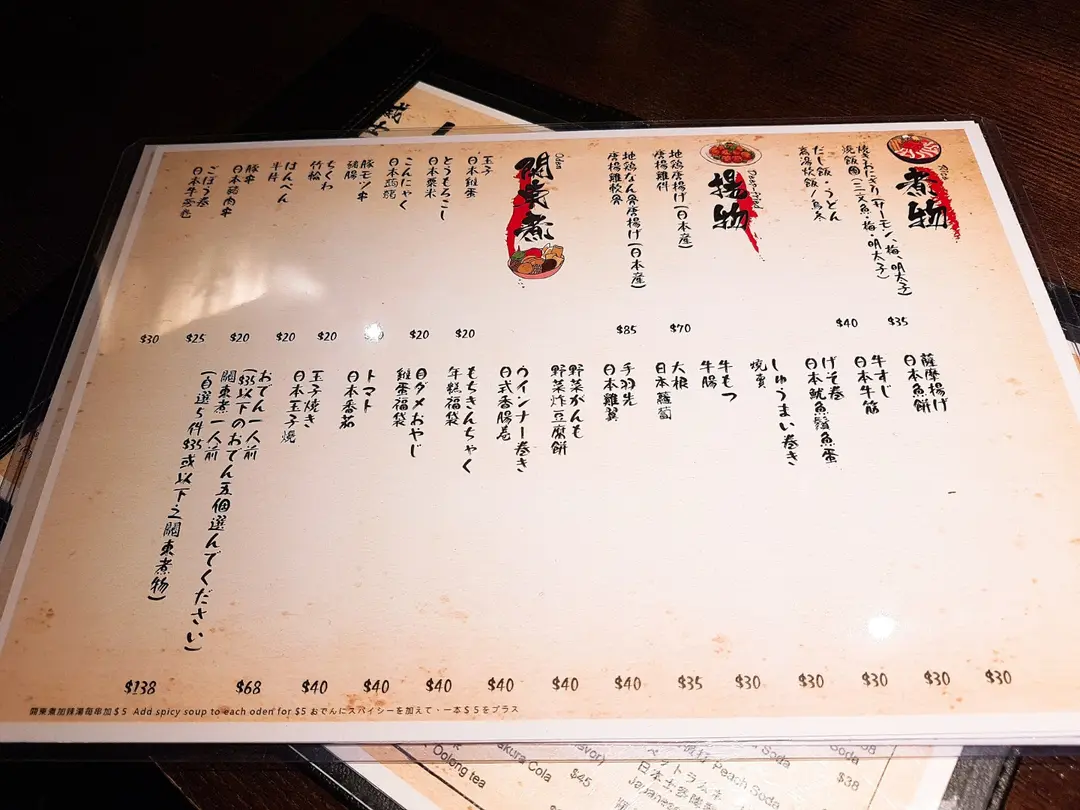 煮物
焼きおにぎり(サーモン、梅、明太子)
燒飯團(三文魚・梅・明太子)
$35
だし飯・うどん
高湯炊飯/烏冬
$40
Deep-fried
揚物
地鶏唐揚げ(日本産)
唐揚雞件
$70
地鶏なん骨唐揚げ(日本産)
唐揚雞軟骨
$85
Oden
關東煮
玉子
日本雞蛋
$20
とうもろこし
日本粟米
$20
こんにゃく
日本蒟蒻
豚モツ串
豬腸
$20
ちくわ
竹輪
$20
はんぺん
半片
$20
豚串
日本豬肉串
$25
ごぼう巻
日本牛蒡卷
$30
薩摩揚げ
日本魚餅
$30
牛すじ
日本牛筋
$30
げそ巻
日本魷魚鬚魚蛋
$30
しゅうまい巻き
燒賣
$30
牛もつ
牛腸
$30
大根
日本蘿蔔
$35
手羽先
日本雞翼
$40
野菜がんも
野菜炸豆腐餅
$40
ウインナー巻き
日式香腸卷
$40
もちきんちゃく
年糕福袋
$40
目ダメおやじ
雞蛋福袋
$40
トマト
日本番茄
$40
玉子焼き
日本玉子燒
$68
おでん一人前
($35以下のおでん五個選んでください)
關東煮一人前
(自選5件$35或以下之關東煮物)
$138
關東煮加辣湯每串加$5 Add spicy soup to each oden for $5 おでんにスパイシーを加えて・一本$5をプラス
Oolong tea
akura Cola
$45
Peach Soda
ペットラムネ
Soda
Soda
$38